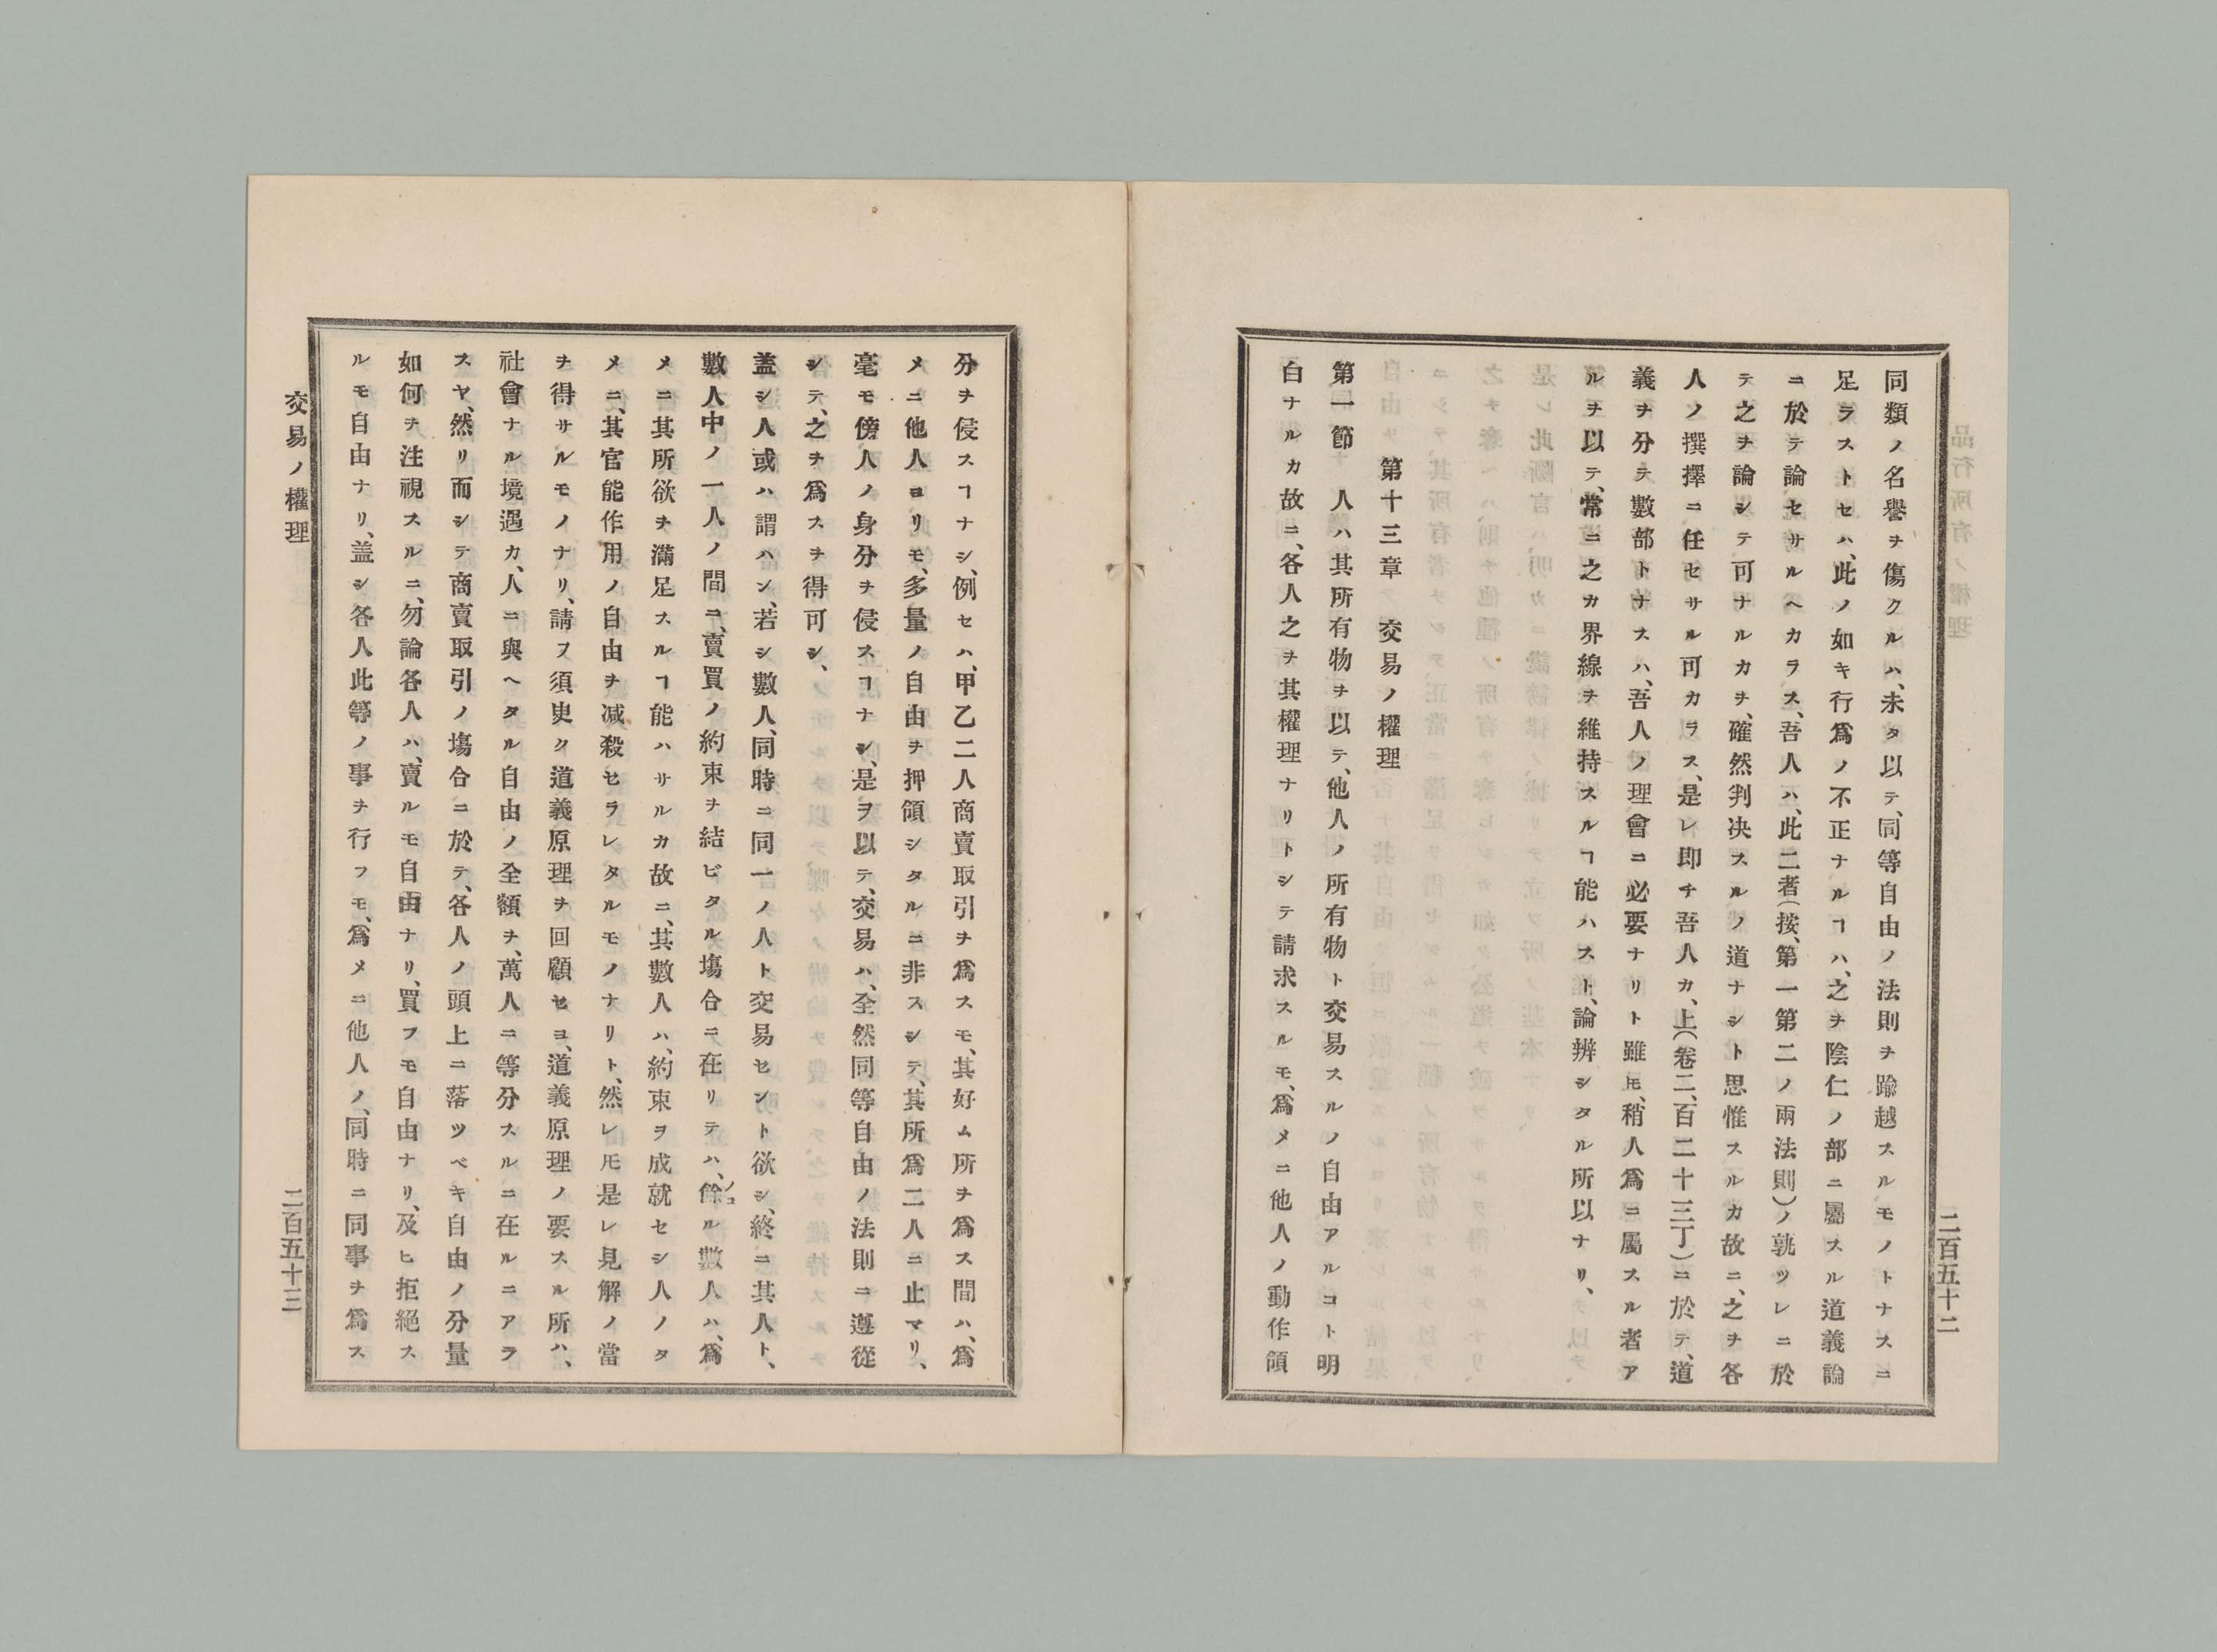 同類ノ名譽ヲ傷クルハ、未タ以テ、同等自由ノ法則ヲ踰越スルモノトナスニ
足ラストセハ、此ノ如キ行爲ノ不正ナルヿハ、之ヲ陰仁ノ部ニ屬スル道義論
ニ於テ論セサルヘカラス、吾人ハ、此二者(按、第一第二ノ兩法則)ノ孰ツレニ於
テ之ヲ論シテ可ナルカヲ、確然判决スルノ道ナシト思惟スルカ故ニ、之ヲ各
人ノ撰擇ニ任セサル可カラス、是レ即チ吾人カ、上(卷二、百二十三丁)ニ於テ、道
義ヲ分テ數部トナスハ、吾人ノ理會ニ必要ナリト雖モ、稍人爲ニ屬スル者ア
ルヲ以テ、常ニ之カ界線ヲ維持スルヿ能ハスト、論辨シタル所以ナリ、
第十三章 交易ノ權理
第一節 人ハ其所有物ヲ以テ、他人ノ所有物ト交易スルノ自由アルコト明
白ナルカ故ニ、各人之ヲ其權理ナリトシテ請求スルモ、爲メニ他人ノ動作領
二百五十二
分ヲ侵スヿナシ、例セハ、甲乙二人商賣取引ヲ爲スモ、其好ム所ヲ爲ス間ハ、爲
メニ他人ヨリモ、多量ノ自由ヲ押領シタルニ非スシテ、其所爲二人ニ止マリ、
毫モ傍人ノ身分ヲ侵スヿナシ、是ヲ以テ、交易ハ、全然同等自由ノ法則ニ遵從
シテ、之ヲ爲スヲ得可シ、
蓋シ人或ハ謂ハン、若シ數人、同時ニ同一ノ人ト交易センﾄ欲シ、終ニ其人ト、
數人中ノ一人ノ間ニ、賣買ノ約束ヲ結ビタル塲合ニ在リテハ、餘ノコル數人ハ、爲
メニ其所欲ヲ滿足スルヿ能ハサルカ故ニ、其數人ハ、約束ヲ成就セシ人ノタ
メニ、其官能作用ノ自由ヲ减殺セラレタルモノナリト、然レモ是レ見解ノ當
ヲ得サルモノナリ、請フ須臾ク道義原理ヲ回顧セヨ、道義原理ノ要スル所ハ、
社會ナル境遇カ、人ニ與ヘタル自由ノ全額ヲ、萬人ニ等分スルニ在ルニアラ
スヤ、然リ而シテ商賣取引ノ塲合ニ於テ、各人ノ頭上ニ落ツベキ自由ノ分量
如何ヲ注視スルニ、勿論各人ハ、賣ルモ自由ナリ、買フモ自由ナリ、及ヒ拒絕ス
ルモ自由ナリ、蓋シ各人此等ノ事ヲ行フモ、爲メニ他人ノ、同時ニ同事ヲ爲ス
交易ノ權理
二百五十三